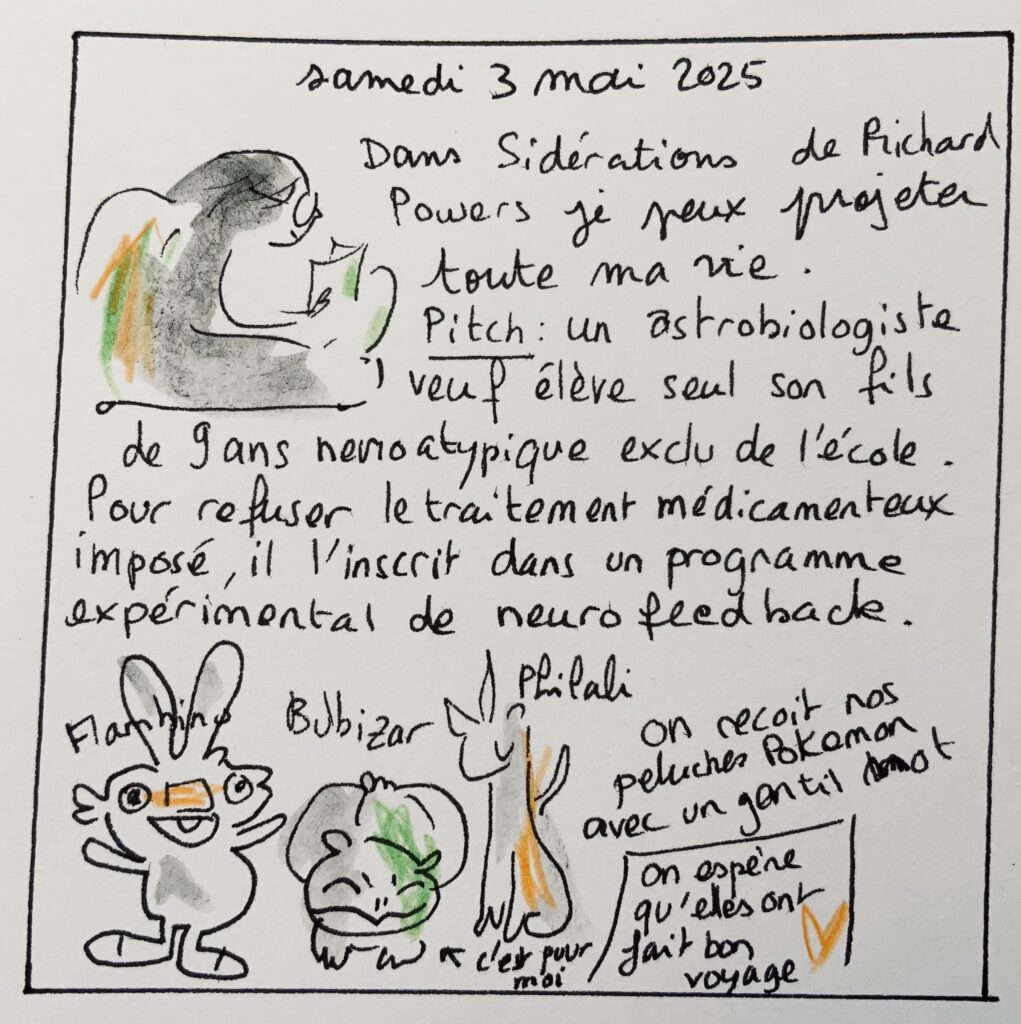 samedi 3 mai 2025
Dans Sidérations de Richard
Powers je peux projeter
toute ma vie.
Pitch : un astrobiologiste
veuf élève seul son fils
de 9 ans neuroatypique exclu de l'école.
Pour refuser le traitement médicamenteux
imposé, il l'inscrit dans un programme
expérimental de neurofeedback.
Flambino
Bulbizar
Philali
On recoit nos
peluches Pokemon
avec un gentil mot
c'est pour
moi
On espère
qu'elles ont
fait bon
voyage